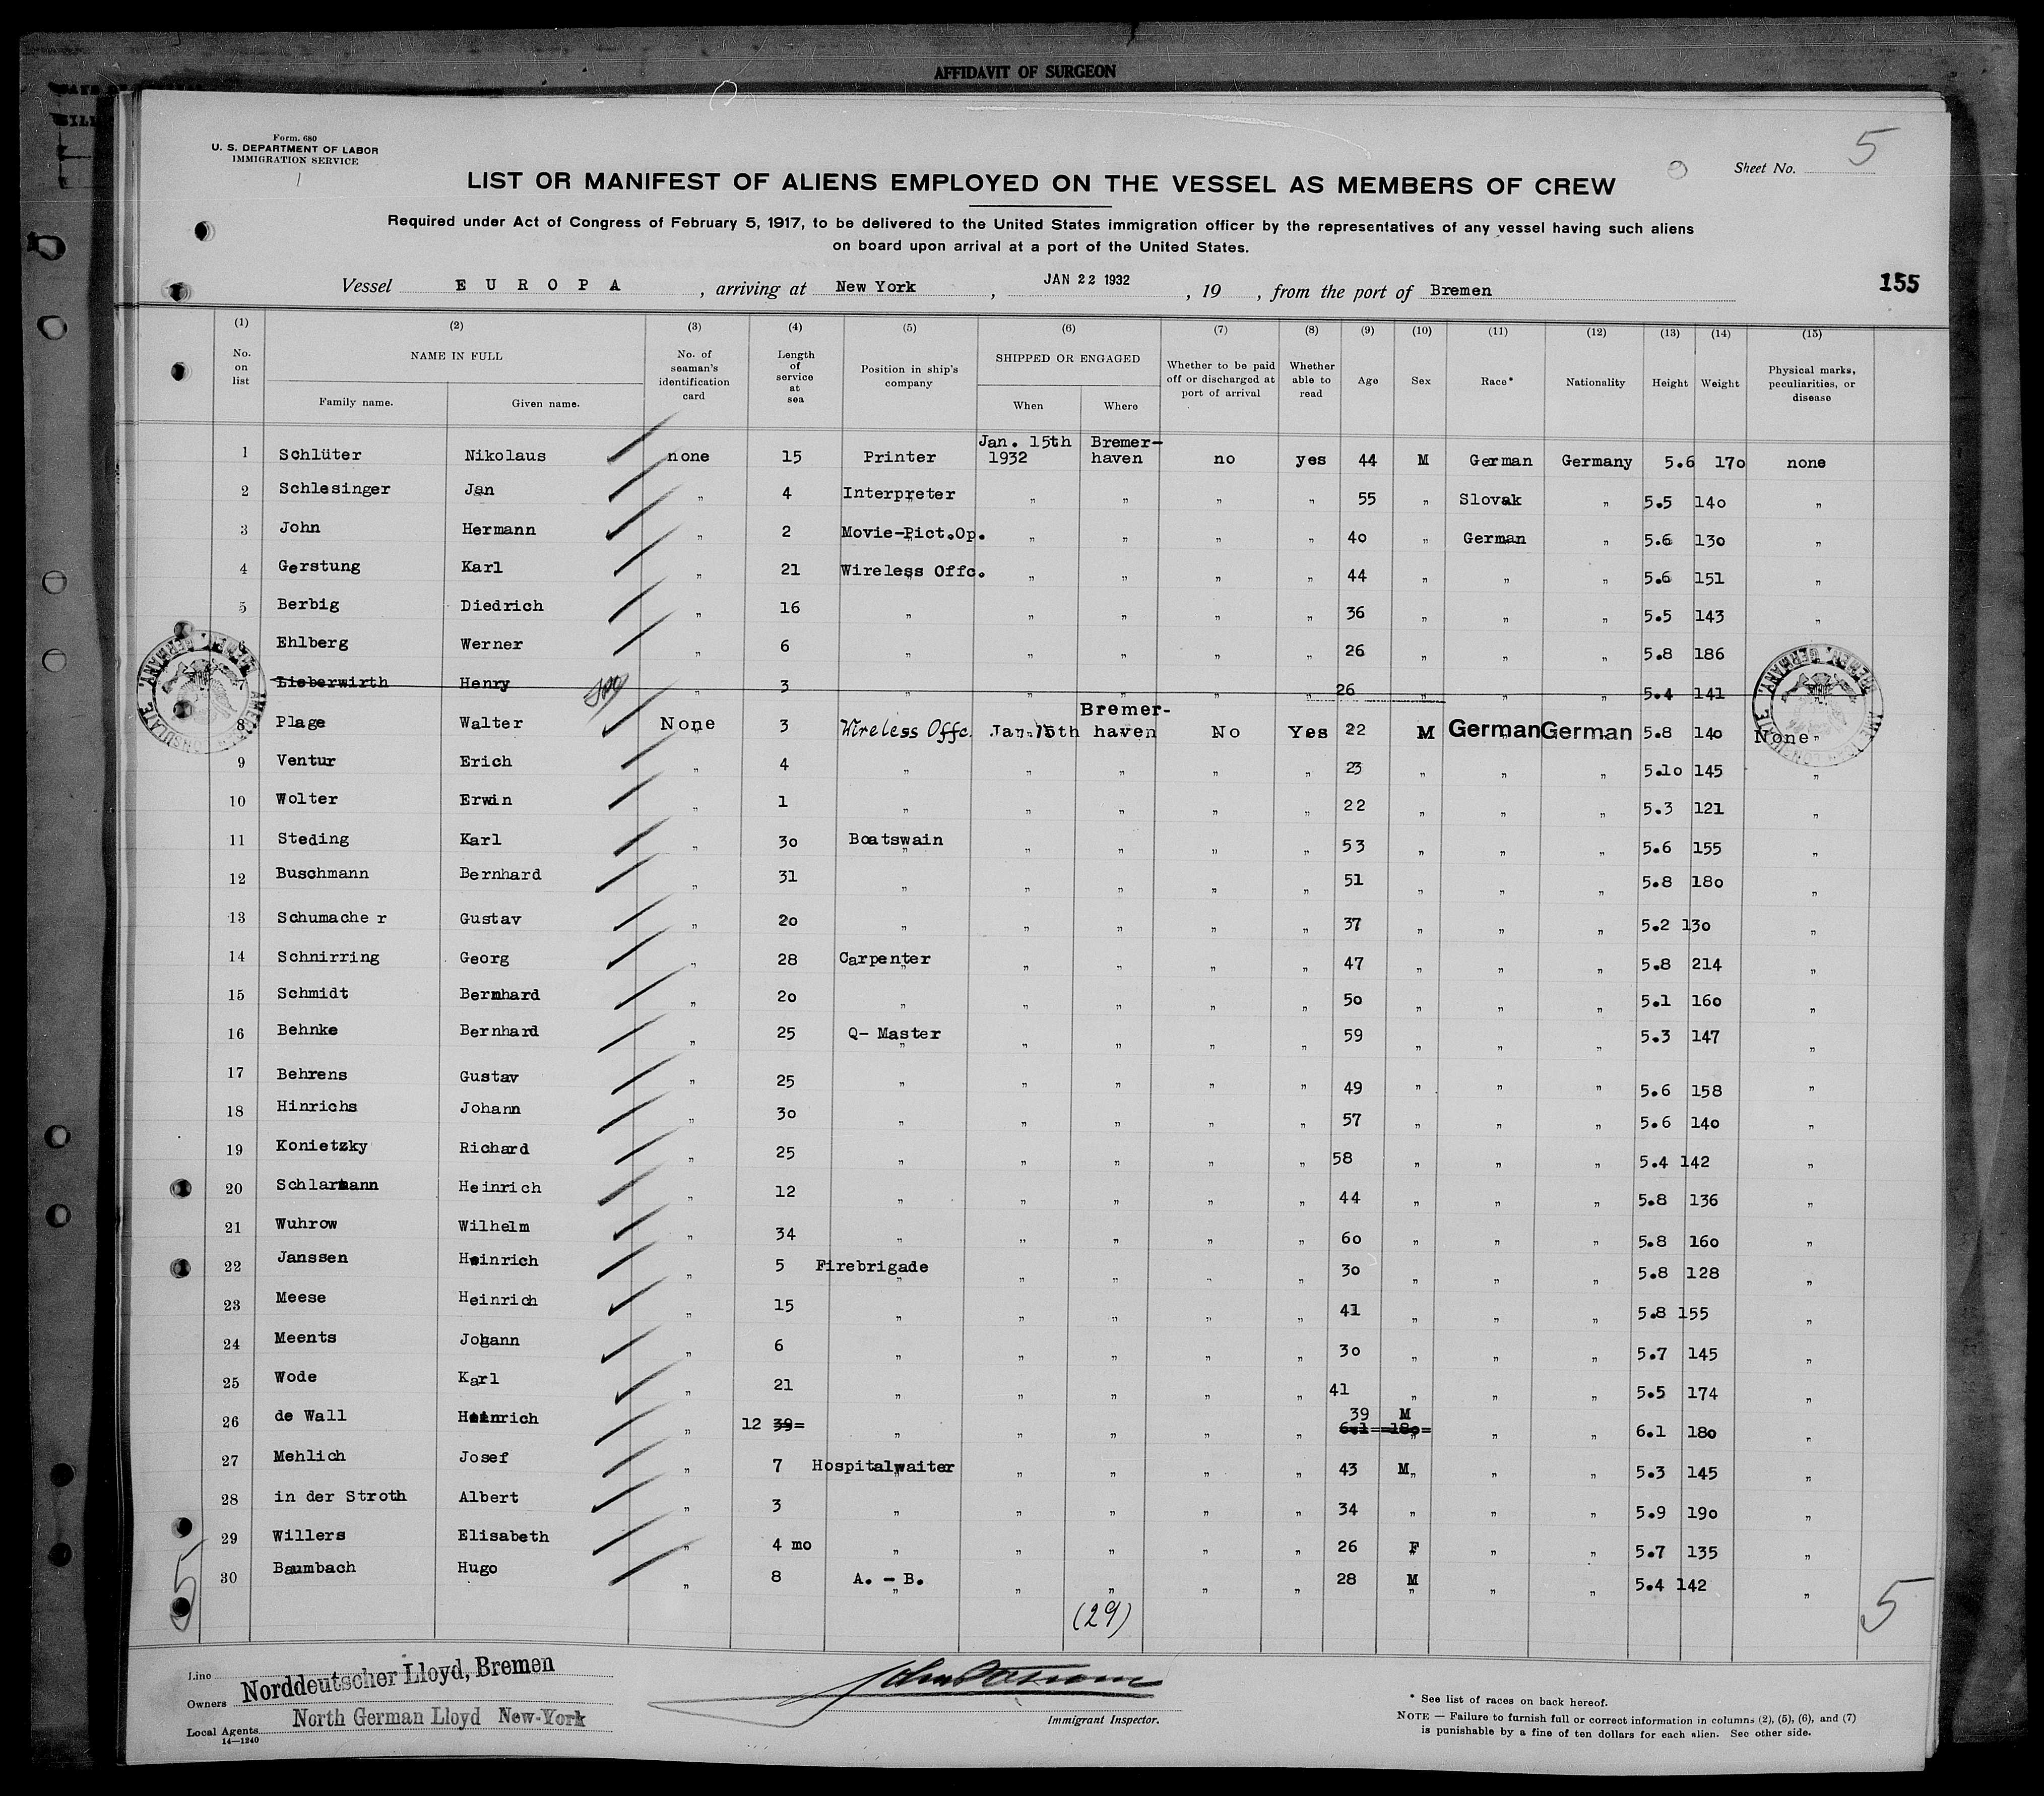 AFFIDAVIT OF SURGEON
Form. 680
U. S. DEPARTMENT OF LABOR
IMMIGRATION SERVICE
Sheet No. 5
LIST OR MANIFEST OF ALIENS EMPLOYED ON THE VESSEL AS MEMBERS OF CREW
Required under Act of Congress of February 5, 1917, to be delivered to the United States immigration officer by the representatives of any vessel having such aliens
on board upon arrival at a port of the United States.
Vessel E U R O P A , arriving at New York , JAN 22 1932 , 19 , from the port of Bremen
155
(1) (2) (3) (4) (5) (6) (7) (8) (9) (10) (11) (12) (13) (14) (15)
No. on list NAME IN FULL Family name. Given name. No. of seaman's identification card Length of service at sea Position in ship's company SHIPPED OR ENGAGED When Where Whether to be paid off or discharged at port of arrival Whether able to read Age Sex Race* Nationality Height Weight Physical marks, peculiarities, or disease
1 Schlüter Nikolaus none 15 Printer Jan. 15th 1932 Bremer-haven no yes 44 M German Germany 5.6 170 none
2 Schlesinger Jan " 4 Interpreter " " " " 55 " Slovak " 5.5 140 "
3 John Hermann " 2 Movie-Pict.Op. " " " " 40 " German " 5.6 130 "
4 Gerstung Karl " 21 Wireless Offc. " " " " 44 " " " 5.6 151 "
5 Berbig Diedrich " 16 " " " " " 36 " " " 5.5 143 "
6 Ehlberg Werner " 6 " " " " " 26 " " " 5.8 186 "
7 Lieberwirth Henry " 3 " " " " " 26 " " " 5.4 141
8 Plage Walter None 3 Wireless Offc. Jan. 15th Bremer-haven No Yes 22 M German German 5.8 140 None
9 Ventur Erich " 4 " " " " " 23 " " " 5.10 145 "
10 Wolter Erwin " 1 " " " " " 22 " " " 5.3 121 "
11 Steding Karl " 30 Boatswain " " " " 53 " " " 5.6 155 "
12 Buschmann Bernhard " 31 " " " " " 51 " " " 5.8 180 "
13 Schumacher Gustav " 20 " " " " " 37 " " " 5.2 130 "
14 Schnirring Georg " 28 Carpenter " " " " 47 " " " 5.8 214 "
15 Schmidt Bernhard " 20 " " " " " 50 " " " 5.1 160 "
16 Behnke Bernhard " 25 Q- Master " " " " 59 " " " 5.3 147 "
17 Behrens Gustav " 25 " " " " " 49 " " " 5.6 158 "
18 Hinrichs Johann " 30 " " " " " 57 " " " 5.6 140 "
19 Konietzky Richard " 25 " " " " " 58 " " " 5.4 142 "
20 Schlarmann Heinrich " 12 " " " " " 44 " " " 5.8 136 "
21 Wuhrow Wilhelm " 34 " " " " " 60 " " " 5.8 160 "
22 Janssen Heinrich " 5 Firebrigade " " " " 30 " " " 5.8 128 "
23 Meese Heinrich " 15 " " " " " 41 " " " 5.8 155 "
24 Meents Johann " 6 " " " " " 30 " " " 5.7 145 "
25 Wode Karl " 21 " " " " " 41 " " " 5.5 174 "
26 de Wall Heinrich " 12 39 " " " " " 39 6.1 M 180 " " 6.1 180 "
27 Mehlich Josef " 7 Hospitalwaiter " " " " 43 M " " 5.3 145 "
28 in der Stroth Albert " 3 " " " " " 34 " " " 5.9 190 "
29 Willers Elisabeth " 4 mo " " " " " 26 F " " 5.7 135 "
30 Baumbach Hugo " 8 A. - B. " " " " 28 M " " 5.4 142 "
(29)
5
5
Line
Owners Norddeutscher Lloyd, Bremen
Local Agents North German Lloyd New-York
14—1240
Immigrant Inspector.
* See list of races on back hereof.
NOTE — Failure to furnish full or correct information in columns (2), (5), (6), and (7)
is punishable by a fine of ten dollars for each alien. See other side.